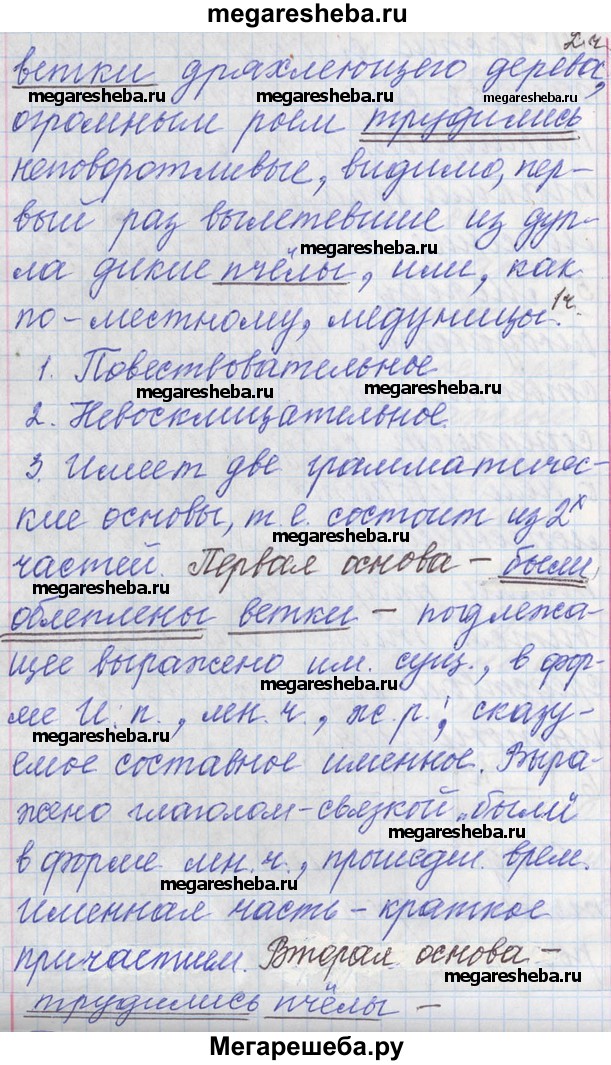 megaresheba.ru
2 ч.
ветки дряхлеющего дерева,
megaresheba.ru megaresheba.ru
огромным роем трудились
неповоротливые, видимо, пер-
вый раз вылетевшие из дуп-
megaresheba.ru
ла дикие пчёлы, или, как
по-местному, медуницы. 1ч.
1. Повествовательное
megaresheba.ru megaresheba.ru
2. Невосклицательное.
3. Имеет две грамматичес-
кие основы, т.е. состоит из 2х
megaresheba.ru megaresheba.ru
частей. Первая основа – были
облеплены ветки – подлежа-
щее выражено им. сущ., в фор-
megaresheba.ru
ме И.п., мн.ч., ж.р.; сказу-
megaresheba.ru
емое составное именное. Выра-
жено глаголом-связкой „были"
megaresheba.ru
в форме мн.ч., прошедш. врем.
megaresheba.ru
Именная часть – краткое
причастием. Вторая основа –
megaresheba.ru
трудились пчёлы –
Мегарешеба.ру